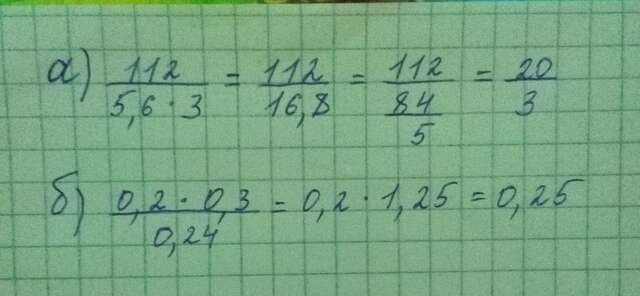 а) 112/(5,6 · 3) = 112/16,8 = 112/(84/5) = 20/3
б) (0,2 · 0,3)/0,24 = 0,2 · 1,25 = 0,25